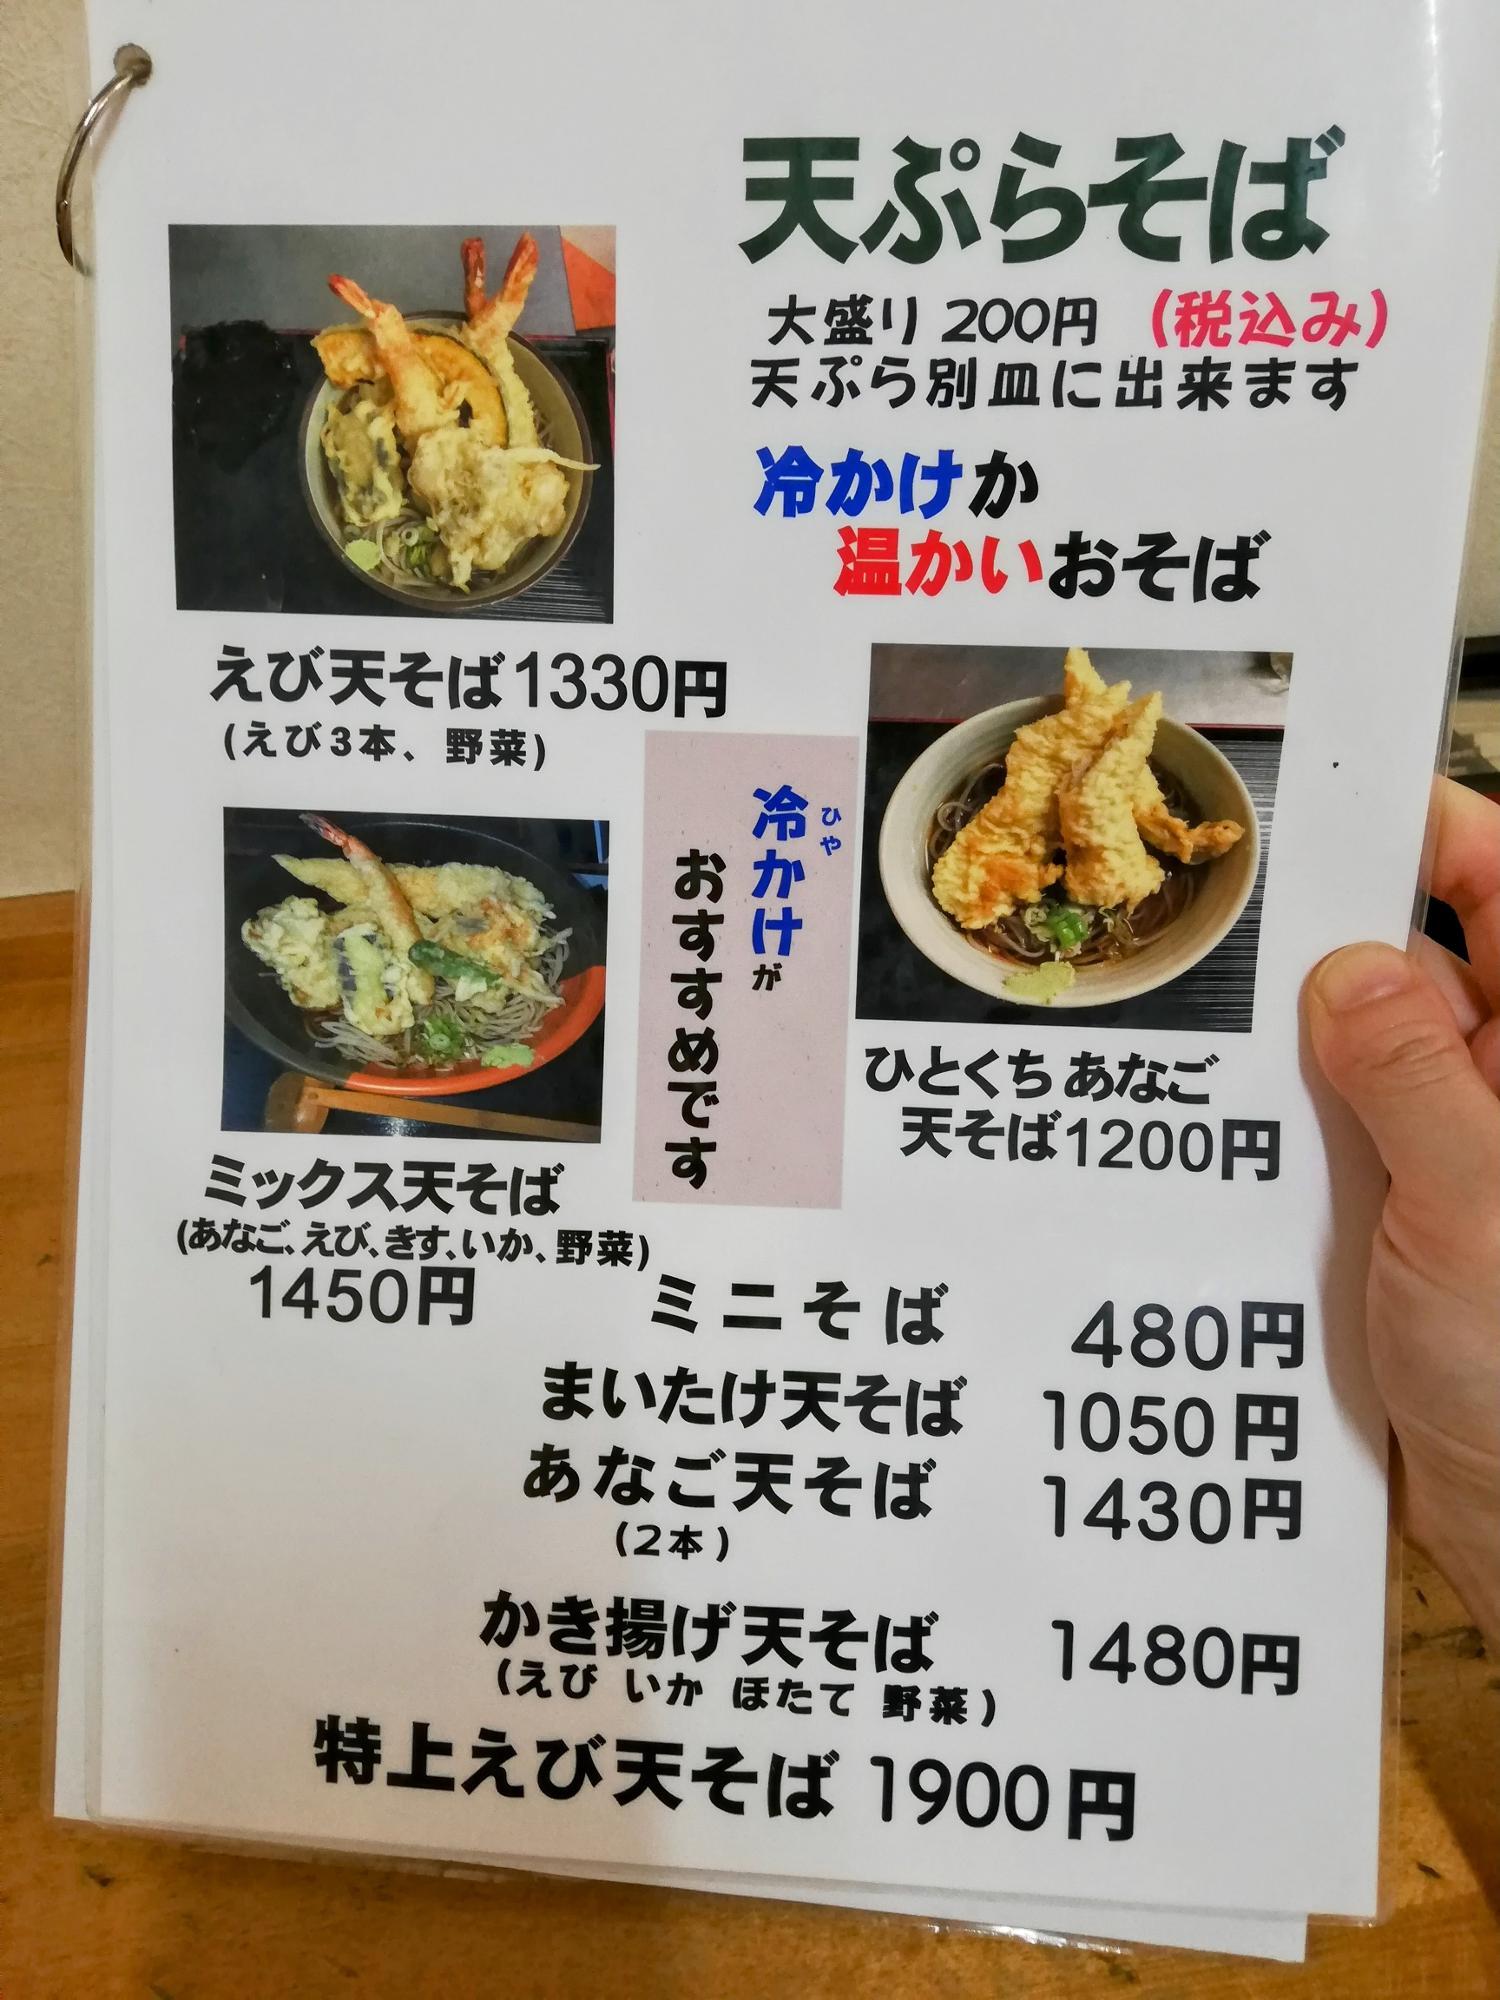 天ぷらそば
大盛り 200円 (税込み)
天ぷら別皿に出来ます
冷かけか
温かいおそば
えび天そば1330円
(えび3本、野菜)
冷かけが
ひや
おすすめです
ひとくちあなご
天そば1200円
ミックス天そば
(あなご、えび、きす、いか、野菜)
1450円
ミニそば 480円
まいたけ天そば 1050円
あなご天そば 1430円
(2本)
かき揚げ天そば 1480円
(えび いか ほたて 野菜)
特上えび天そば 1900円